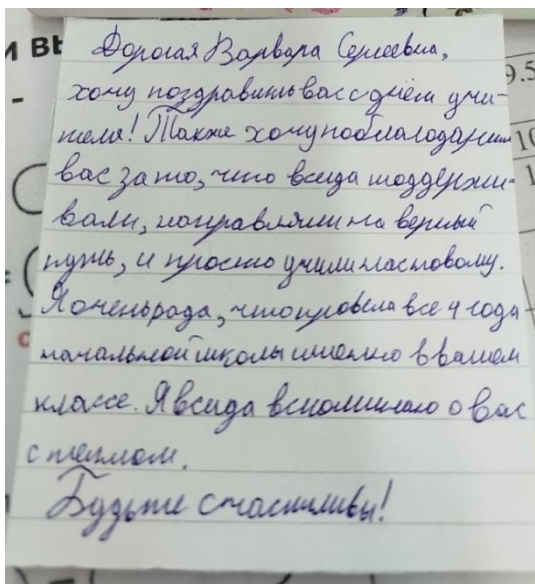 И ВЫ
9.5
10
1
Дорогая Варвара Сергеевна,
хочу поздравить вас с днём учи-
теля! Также хочу поблагодарить
вас за то, что всегда поддержи-
вали, направляли на верный
путь, и просто учили новому.
Я очень рада, что провела все 4 года
начальной школы именно в вашем
классе. Я всегда вспоминаю о вас
с теплом.
Будьте счастливы!